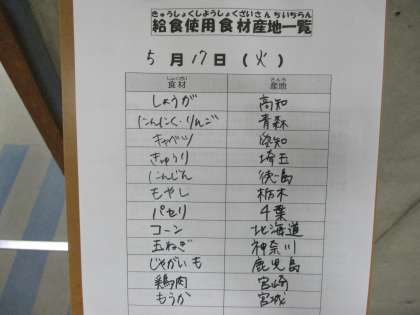 きゅうしょくしようしょくざいさんちいちらん
給食使用食材産地一覧
5月17日(火)
しょくざい さんち
食材 産地
しょうが 高知
にんにく・りんご 青森
キャベツ 愛知
きゅうり 埼玉
にんじん 徳島
もやし 栃木
パセリ 千葉
コーン 北海道
玉ねぎ 神奈川
じゃがいも 鹿児島
鶏肉 宮崎
もうか 宮城